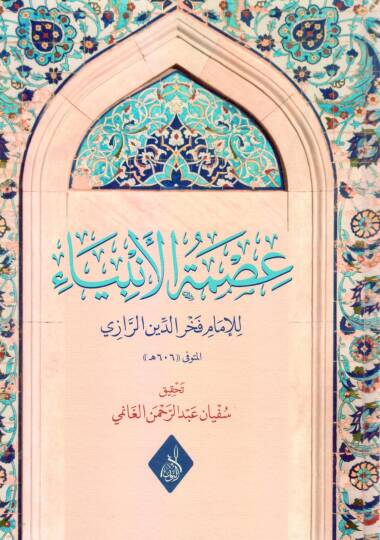 عِصْمَةُ الأَنْبِيَاءِ
لِلإِمَامِ فَخْرِ الدِّينِ الرَّازِي
المتوفى ((٦٠٦هـ))
تَحْقِيق
سُفْيَان عَبْدالرَّحْمَن الغَانمي